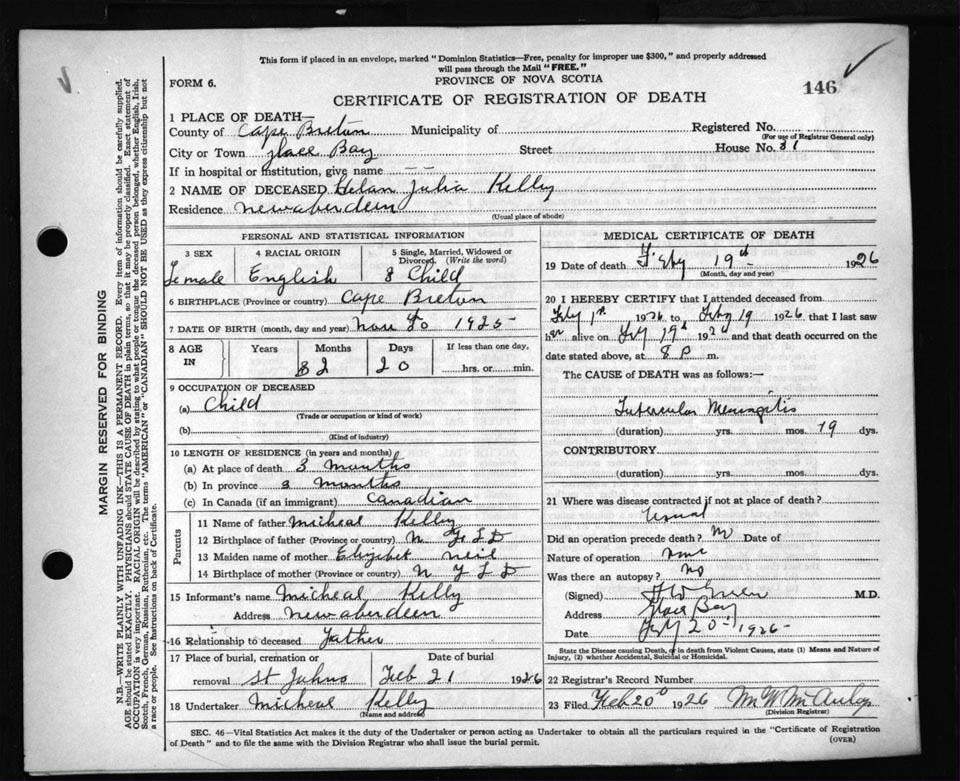 This form if placed in an envelope, marked "Dominion Statistics—Free, penalty for improper use $300," and properly addressed
will pass through the Mail "FREE."
FORM 6.
PROVINCE OF NOVA SCOTIA
146
CERTIFICATE OF REGISTRATION OF DEATH
1 PLACE OF DEATH—
County of Cape Breton Municipality of Registered No.
(For use of Registrar General only)
City or Town Glace Bay Street House No. 81
If in hospital or institution, give name — —
2 NAME OF DECEASED Helan Julia Kelly
Residence Newaberdeen
(Usual place of abode)
PERSONAL AND STATISTICAL INFORMATION
3 SEX 4 RACIAL ORIGIN 5 Single, Married, Widowed or
Divorced. (Write the word)
Female English S Child
6 BIRTHPLACE (Province or country) Cape Breton
7 DATE OF BIRTH (month, day and year) Nov 1925
8 AGE IN Years Months Days If less than one day,
2 20 hrs. or min.
9 OCCUPATION OF DECEASED
(a) Child
(Trade or occupation or kind of work)
(b)
(Kind of industry)
10 LENGTH OF RESIDENCE (in years and months)
(a) At place of death 3 months
(b) In province 3 months
(c) In Canada (if an immigrant) Canadian
Parents
11 Name of father Micheal Kelly
12 Birthplace of father (Province or country) N. F. L D
13 Maiden name of mother Elizibet Neil
14 Birthplace of mother (Province or country) N F L D
15 Informant's name Micheal Kelly
Address Newaberdeen
16 Relationship to deceased Father
17 Place of burial, cremation or Date of burial
removal St Johns Feb 21 1926
18 Undertaker Micheal Kelly
(Name and address)
MEDICAL CERTIFICATE OF DEATH
19 Date of death Feby 19th 1926
(Month, day and year)
20 I HEREBY CERTIFY that I attended deceased from
Feby 1st 1926 to Feby 19 1926 that I last saw
her alive on Feby 19th 1926 and that death occurred on the
date stated above, at 8 P m.
The CAUSE of DEATH was as follows:—
Tubercular Meningitis
(duration) yrs. mos. 19 dys.
CONTRIBUTORY
(duration) yrs. mos. dys.
21 Where was disease contracted if not at place of death?
Usual
Did an operation precede death? No Date of
Nature of operation none
Was there an autopsy? no
(Signed) M.D.
Address Glace Bay
Date Feby 20 1926
State the Disease causing Death, or in death from Violent Causes, state (1) Means and Nature of
Injury, (2) whether Accidental, Suicidal or Homicidal.
22 Registrar's Record Number
23 Filed Feb 20 1926
(Division Registrar)
SEC. 46—Vital Statistics Act makes it the duty of the Undertaker or person acting as Undertaker to obtain all the particulars required in the "Certificate of Registration
of Death" and to file the same with the Division Registrar who shall issue the burial permit. (OVER)
MARGIN RESERVED FOR BINDING
N.B.—WRITE PLAINLY WITH UNFADING INK—THIS IS A PERMANENT RECORD. Every item of information should be carefully supplied.
AGE should be stated EXACTLY. PHYSICIANS should STATE CAUSE OF DEATH in plain terms, so that it may be properly classified. Exact statement of
OCCUPATION is very important. RACIAL ORIGIN will be described by stating to what people or tongue the deceased person belonged, whether English, Irish,
Scotch, French, German, Russian, Ruthenian, etc. The terms "AMERICAN" or "CANADIAN" SHOULD NOT BE USED as they express citizenship but not
a race or people. See instructions on back of Certificate.